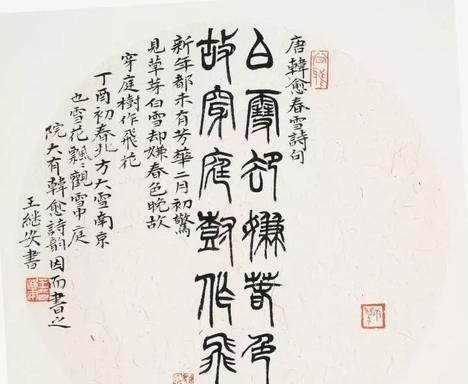 唐韓愈春雪詩句
白雪却嫌春色
故穿庭樹作飛
新年都未有芳華二月初驚
見草芽白雪却嫌春色晚故
穿庭樹作飛花
丁酉初春北方大雪南京
也雪花飄觀雪中庭
院大有韓愈詩韵因而書之
王継安書